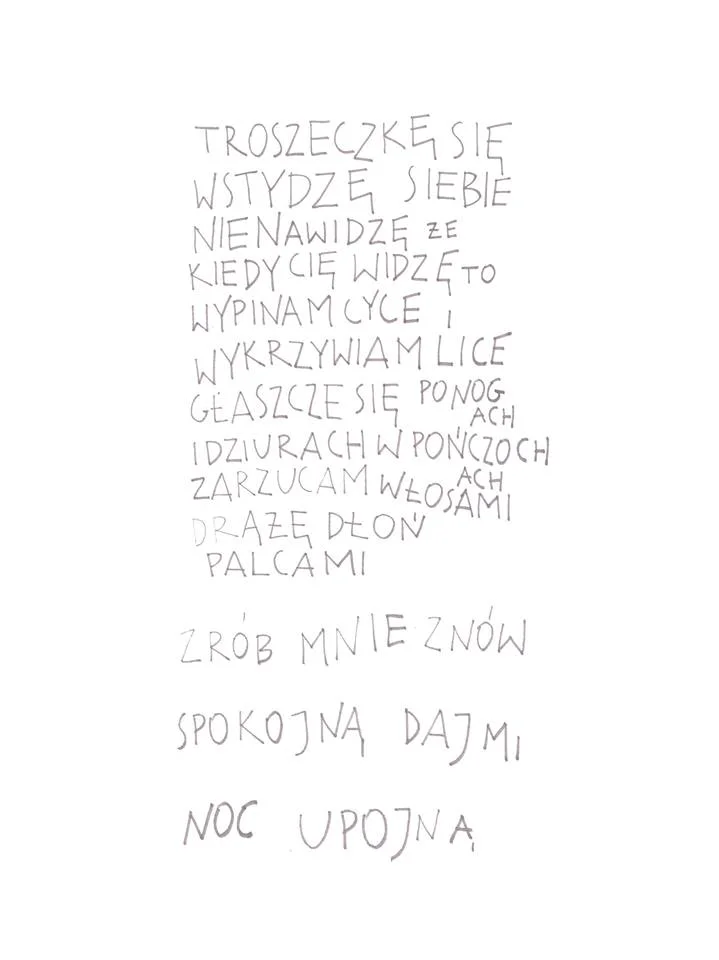 TROSZECZKĘ SIĘ
WSTYDZĘ SIEBIE
NIENAWIDZĘ ŻE
KIEDY CIĘ WIDZĘ TO
WYPINAM CYCE I
WYKRZYWIAM LICE
GŁASZCZE SIĘ PO NOGACH
I DZIURACH W POŃCZOCHACH
ZARZUCAM WŁOSAMI
DRĄŻĘ DŁOŃ
PALCAMI
ZRÓB MNIE ZNÓW
SPOKOJNĄ DAJ MI
NOC UPOJNĄ